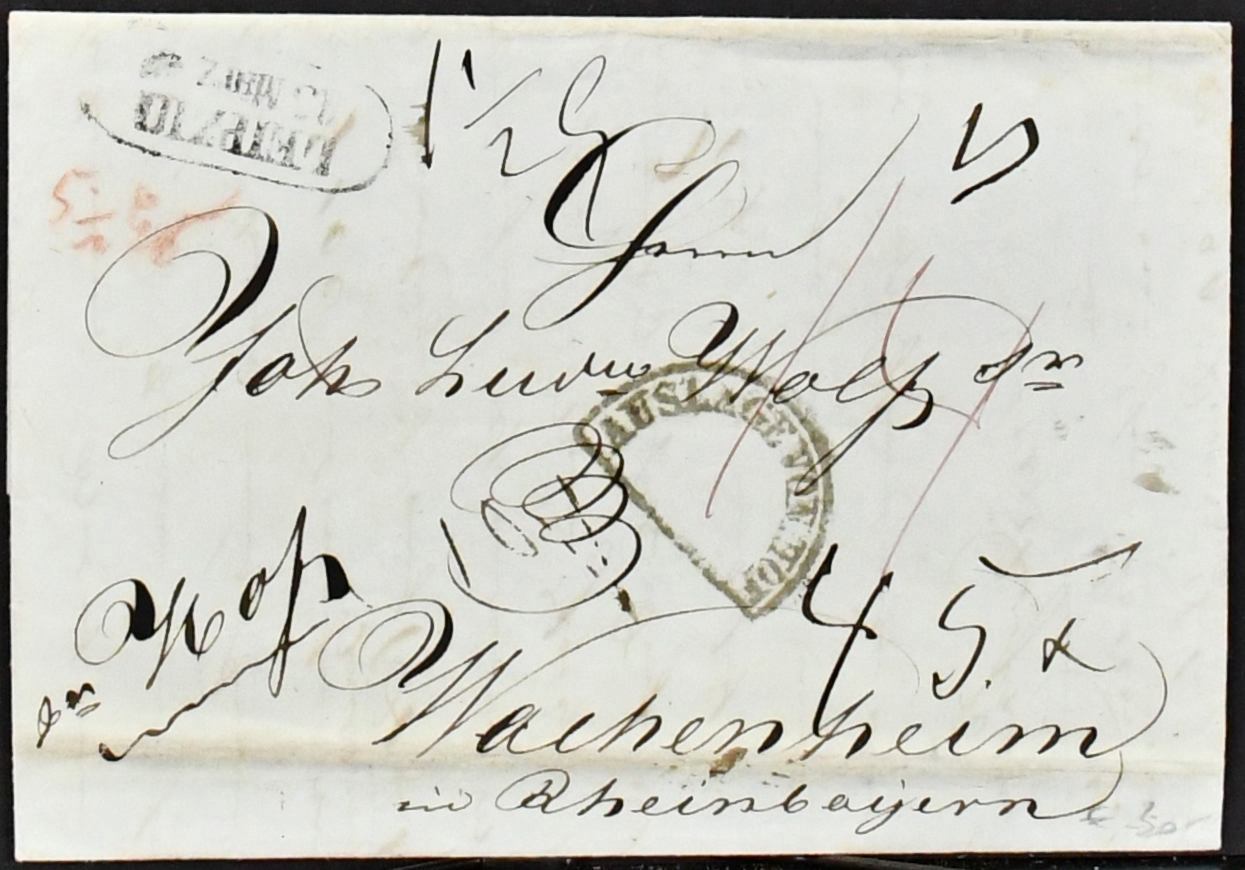 LEIPZIG
12 März
5½
1½
Herrn
Joh. Ludw. Wolf Sr
AUSLAGE VON HOF
pr Hof
45 x
Wachenheim
in Rheinbayern